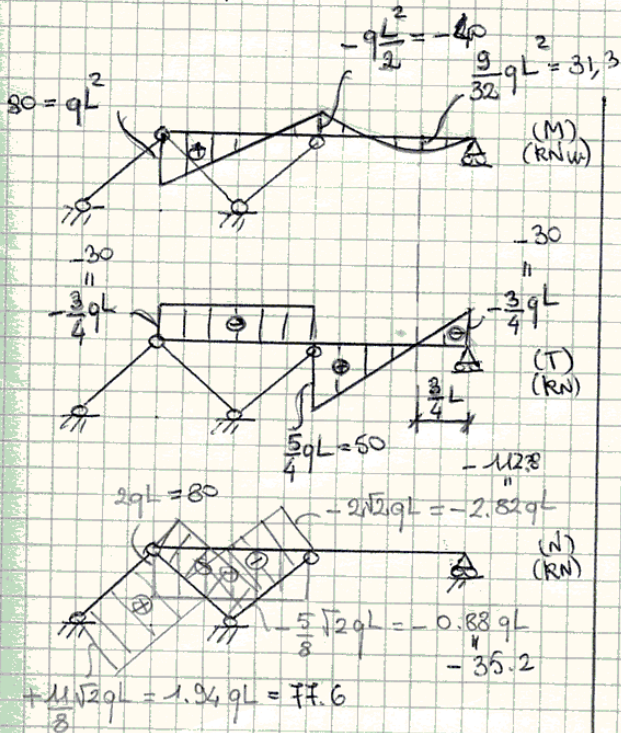 -qL²/2 = -40
9/32 qL² = 31,3
80 = qL²
+
(M)
(KNm)
-30
=
-3/4 qL
-
+
-30
=
-3/4 qL
-
(T)
(KN)
3/4 L
5/4 qL = 50
-112.8
=
2qL = 80
-2√2qL = -2.82qL
(N)
(KN)
-
-
+
-5/8 √2qL = -0.88qL
=
-35.2
+11/8 √2qL = 1.94qL = 77.6